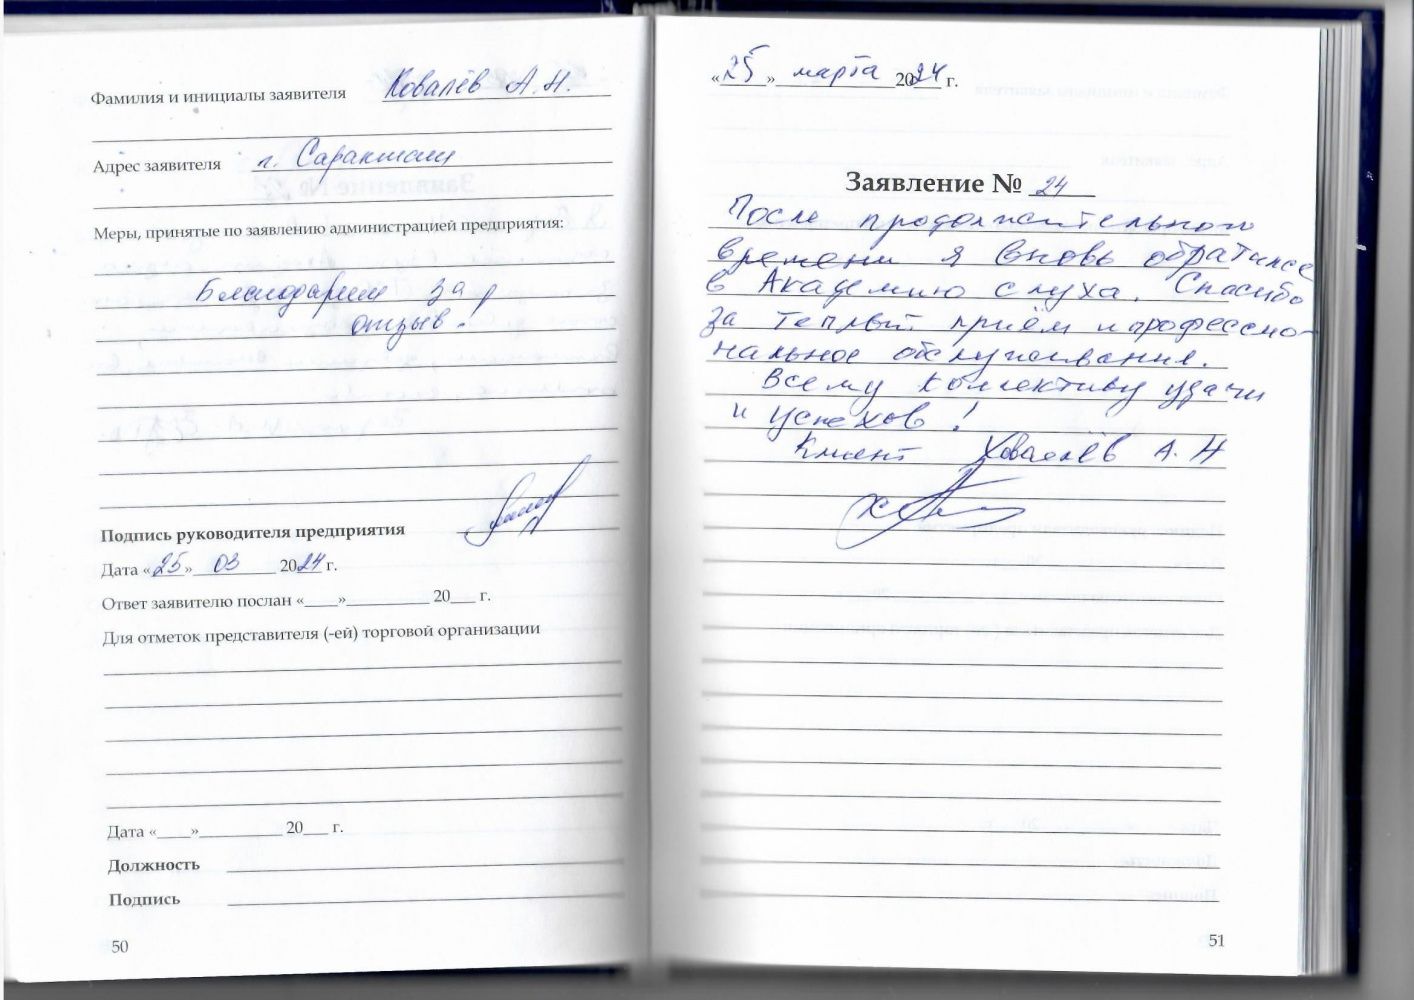 Фамилия и инициалы заявителя Ковалёв А.Н.
Адрес заявителя г. Саракташ
Меры, принятые по заявлению администрацией предприятия:
Благодарим за
отзыв!
Подпись руководителя предприятия
Дата «25» 03 2024 г.
Ответ заявителю послан «____»__________ 20___ г.
Для отметок представителя (-ей) торговой организации
Дата «____»__________ 20___ г.
Должность
Подпись
50
«25» марта 2024 г.
Заявление № 24
После продолжительного
времени я вновь обратился
в Академию слуха. Спасибо
за теплый приём и профессио-
нальное обслуживание.
Всему коллективу удачи
и успехов!
Клиент Ковалёв А. Н
51